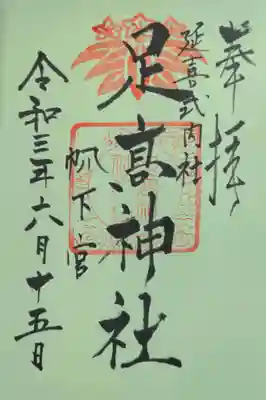 奉拝
延喜式内社
足高神社
帆下宮
令和三年六月十五日